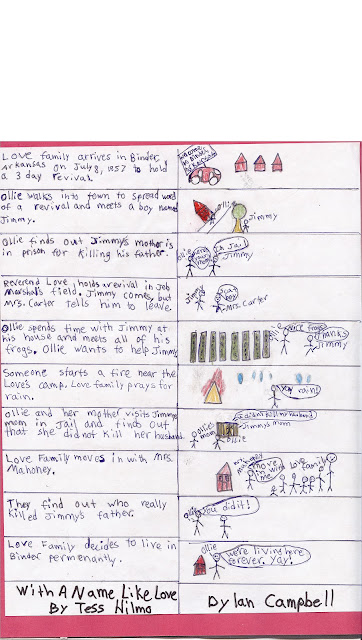 Love family arrives in Binder,
Arkansas on July 8, 1957 to hold
a 3 day revival.
Ollie walks into town to spread word
of a revival and meets a boy named
Jimmy.
Ollie
Jimmy
Ollie finds out Jimmy's mother is
in prison for killing his father.
Ollie
In Jail
Jimmy
Reverend Love, holds a revival in Jeb
Marshals field. Jimmy comes, but
Mrs. Carter tells him to leave.
Jimmy
Mrs. Carter
Ollie spends time with Jimmy at
his house and meets all of his
frogs. Ollie wants to help Jimmy.
nice frogs
Thanks
Jimmy
Someone starts a fire near the
Loves camp. Love family prays for
rain.
rain!
Ollie and her mother visits Jimmys
mom in Jail and finds out
that she did not kill her husband.
Ollies
mom
Jimmys mom
Ollie
Love Family moves in with Mrs.
Mahoney.
move
in with
me
Love family
They find out who really
killed Jimmy's father.
Ollie
You did it!
Love Family decides to live in
Binder permenantly.
Ollie
were living here
forever. Yay!
With A Name Like Love
By Tess Hilmo
Dylan Campbell